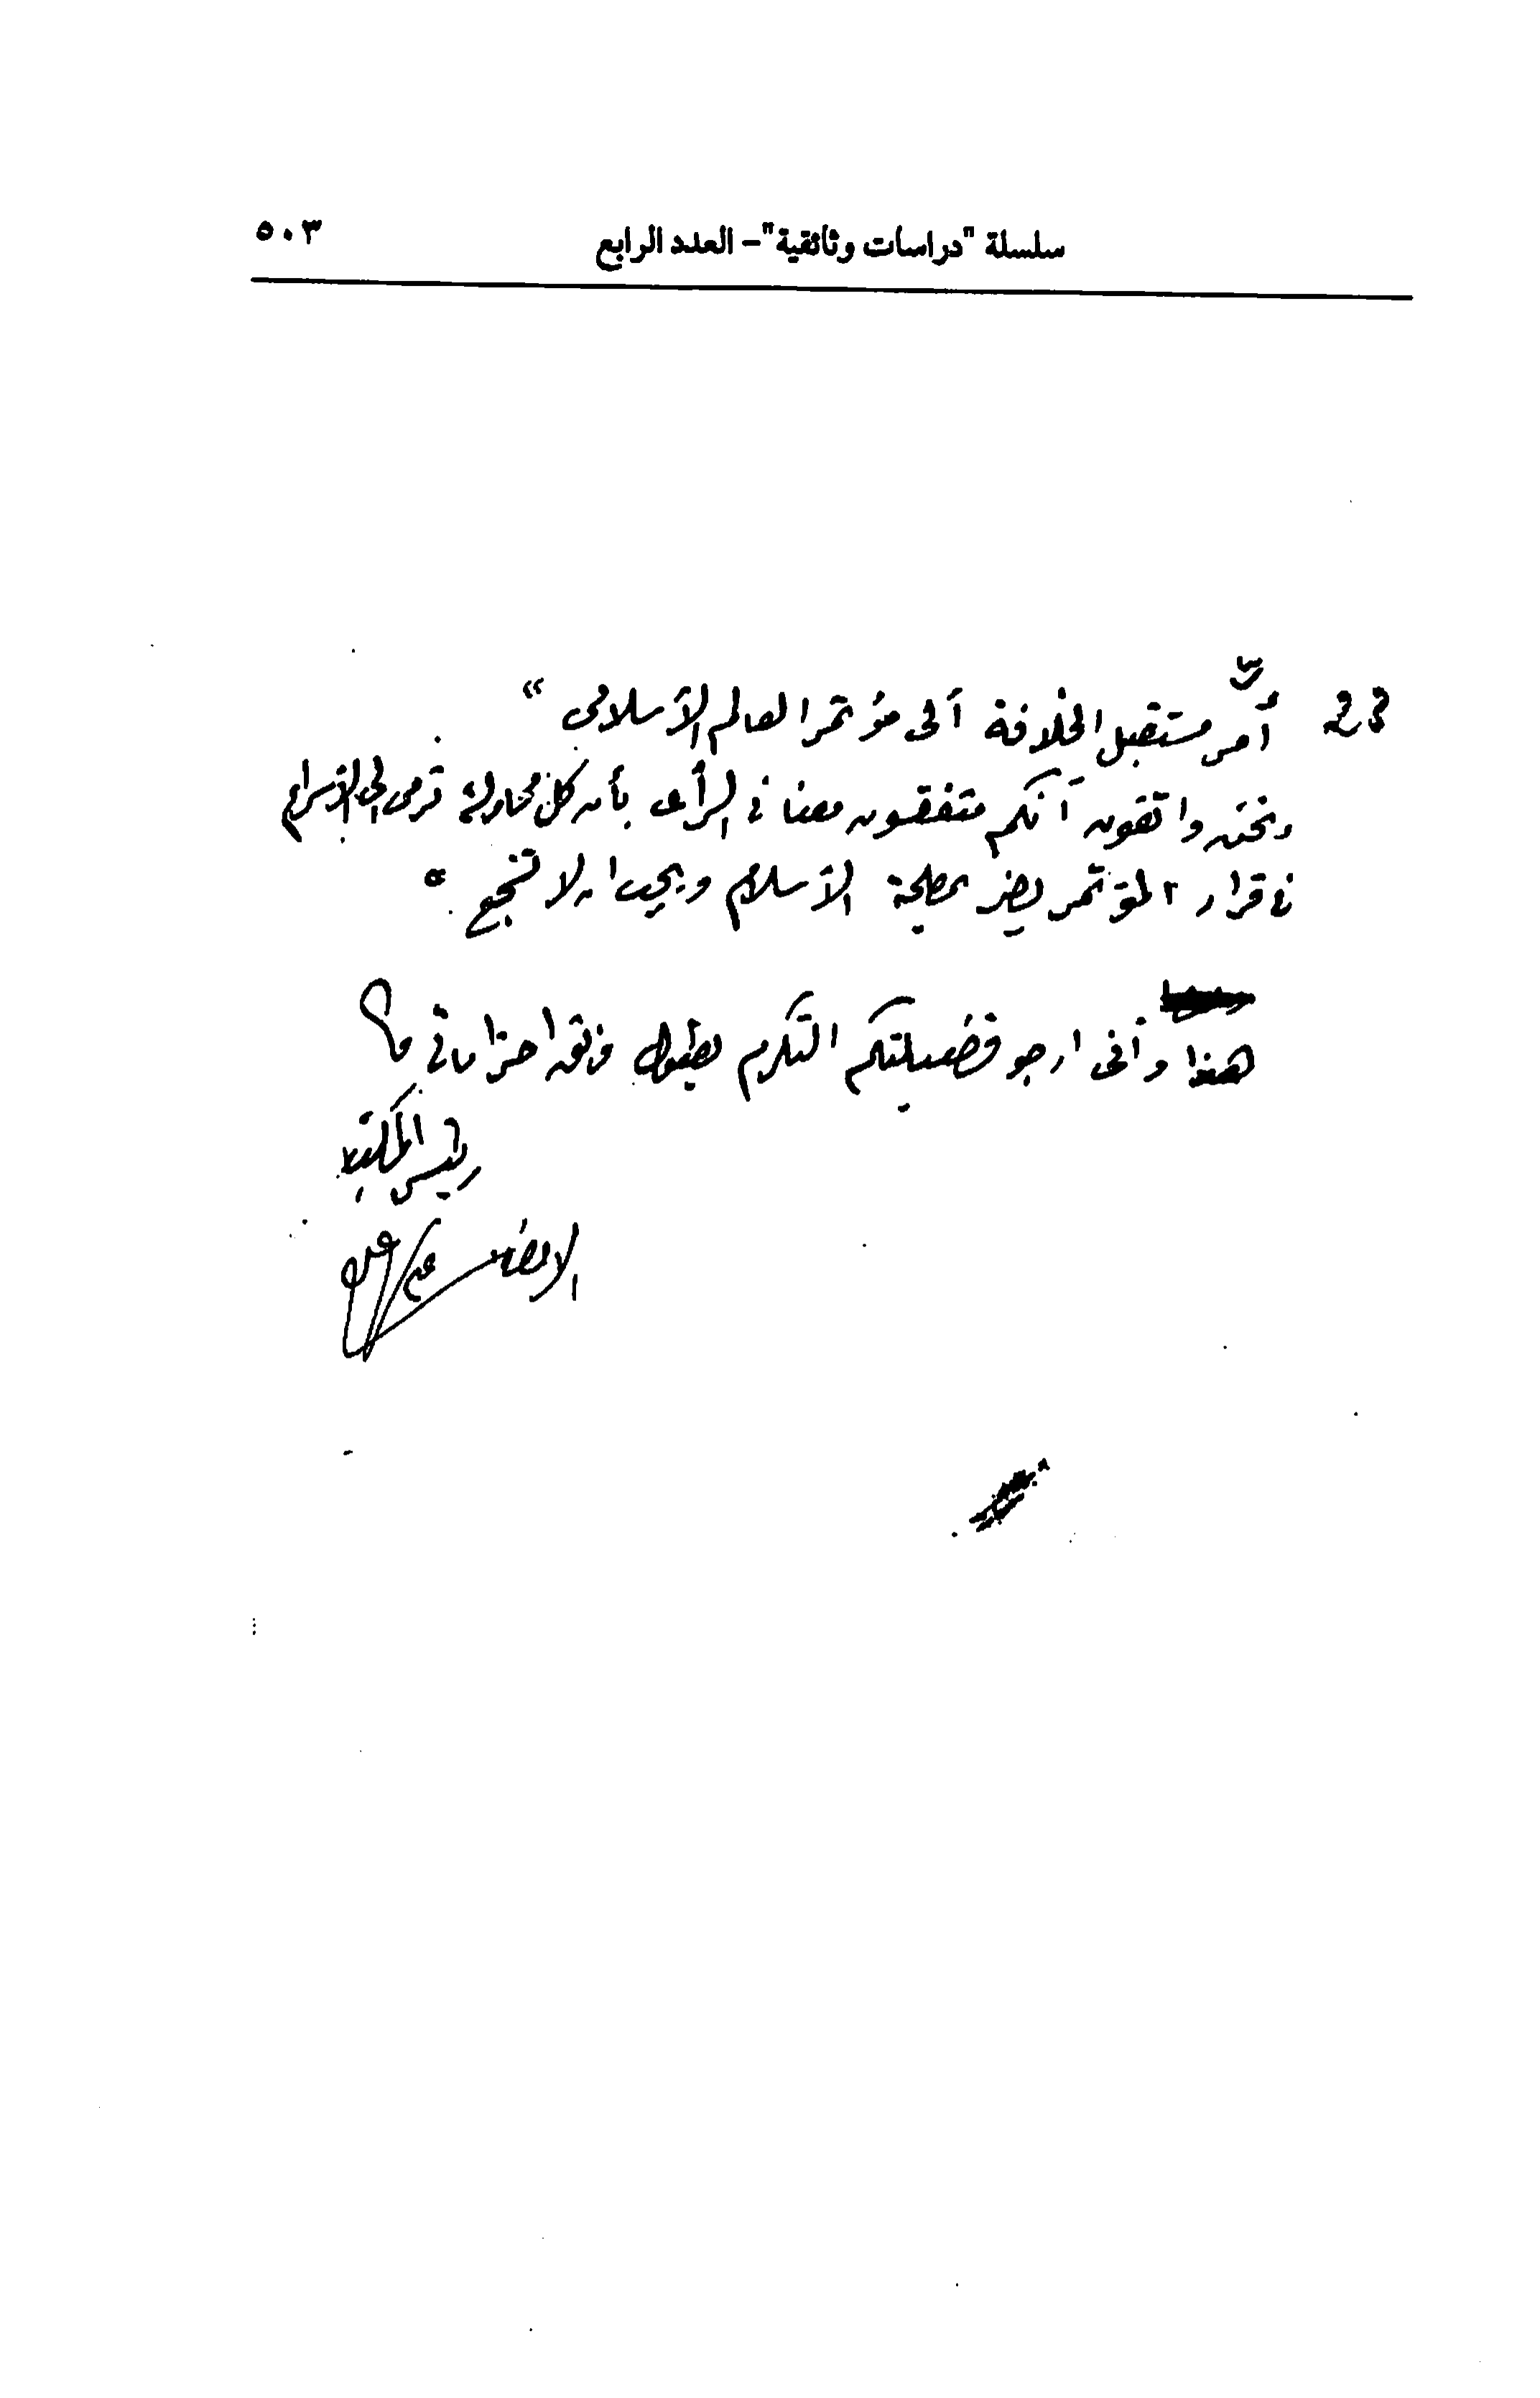 سلسلة "دراسات وثائقية"- العدد الرابع ٥٠٣
أمر مستقبل الخلافة ألى مؤتمر العالم الأسلامى "
ونحن واثقون أنكم متفقون معنا فى الرأى بأن كل محاولة ترمى الى الأسراع
فى قرار المؤتمر يضر بمصلحة الأسلام ويجب ان لا تشجع "
هذا وأنى ارجو فضيلتكم التكرم بقبول فائق احتراماتى
رئيس المكتب
الامضاء